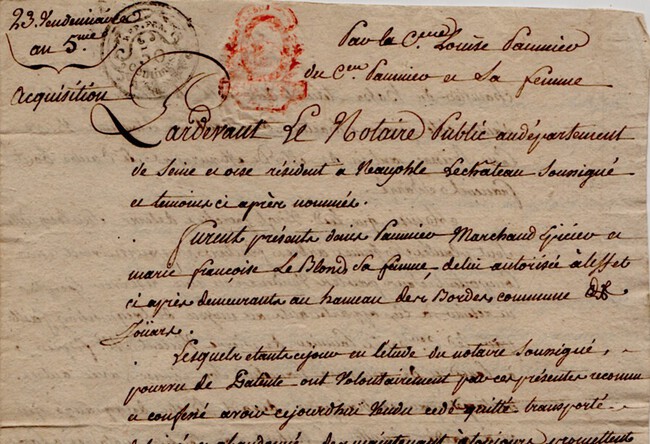 23. Vendemiaire
au 5.me
acquisition
Par la C.enne Louise Paumier
du C.en Paumier et Sa femme
Pardevant Le Notaire Public audépartement
de Seine et oise résident a Neauphle Lechâteau Soussigné
et temoins ci après nommés.
furent présents denis Paumier Marchand Epicier et
marie françoise Le Blond Sa femme, delui autorisée àl'effet
ci après demeurants au hameau des Bordes commune de
Joüars.
Lesquels etants cejour en l'étude du notaire soussigné,
pourvu de Patente ont Volontairement par ces présentes reconnu
et confessé avoir cejourdhui Vendu cedé quitté transporté
délaissé et abandonné, des maintenant àtoujours promettent